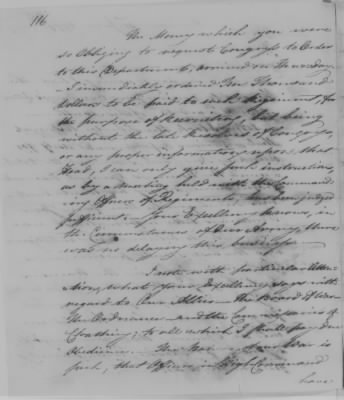 116
The Money which you were
so Obliging to request Congress to Order
to this Department, arrived on Thursday.
I immediately ordered Ten Thousand
Dollars to be paid to each Regiment, for
the purpose of Recruiting, but being
without the late Resolves of Congress,
or any proper information upon that
Head, I can only give such instructions,
as by a Meeting held with the Command
ing Officers of Regiments, has been judged
sufficient. Your Excellency knows, in
the Circumstances of Our Army, there
was no delaying this business.
I note with particular Atten
tion, what your Excellency says with
regard to Our Allies - The Board of War
The Ordnance and the Commissaries of
Cloathing; to all which I shall pay due
Obedience. The
such, that Officers in High Command
have